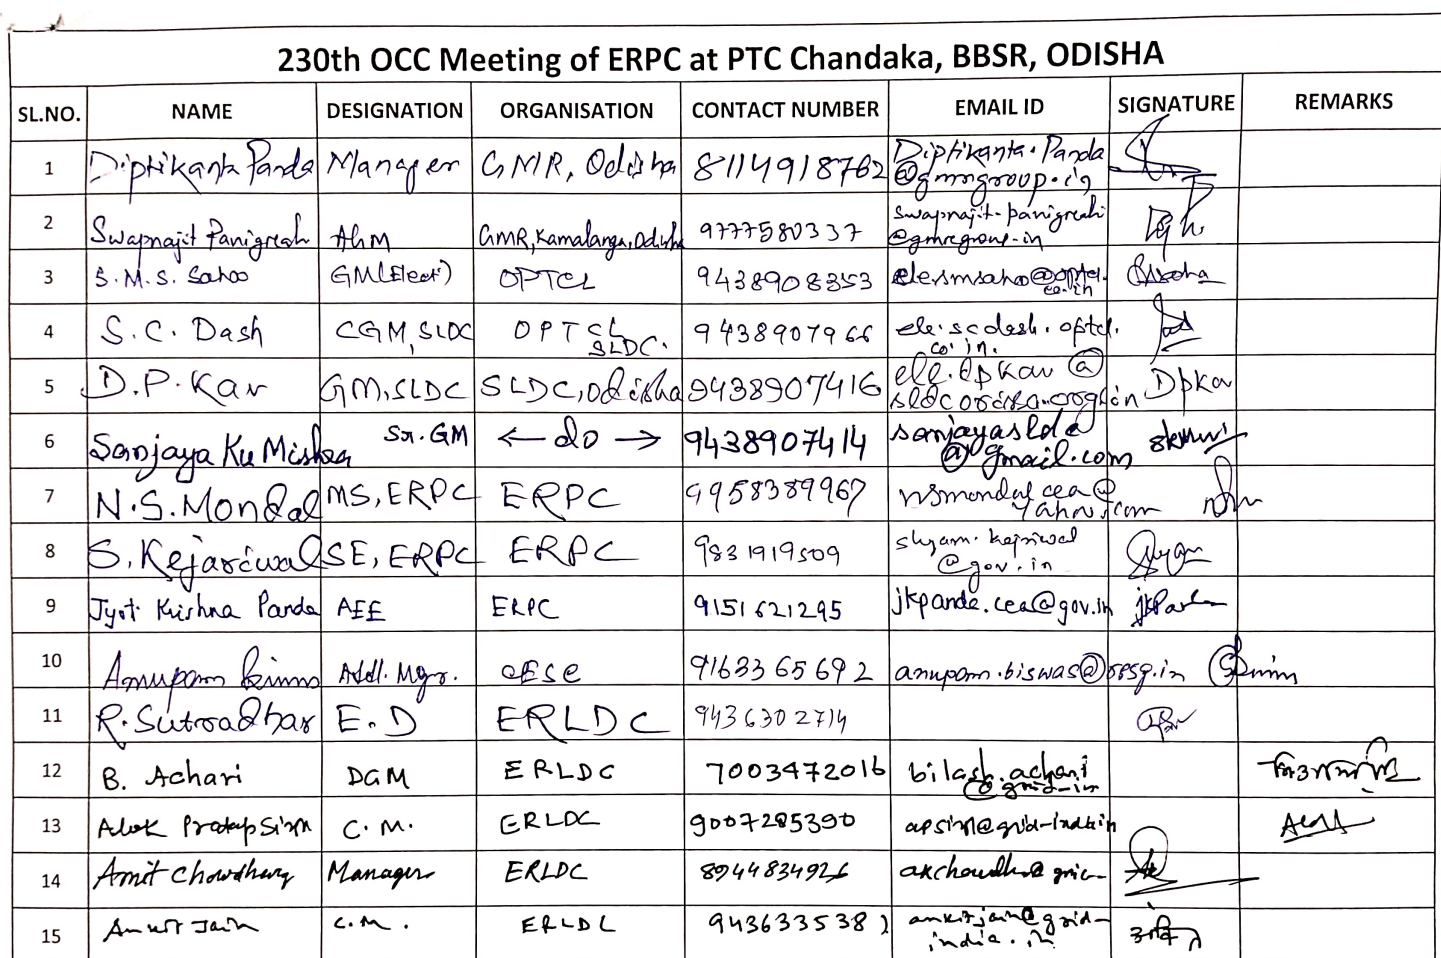 230th OCC Meeting of ERPC at PTC Chandaka, BBSR, ODISHA
SL.NO. NAME DESIGNATION ORGANISATION CONTACT NUMBER EMAIL ID SIGNATURE REMARKS
1 Diptikanta Panda Manager GMR, Odisha 8114918762 Diptikanta.Panda
@gmrgroup.in
2 Swapnajit Panigrahi AGM GMR, Kamalanga, Odisha 9777580337 Swapnajit.panigrahi
@gmrgroup.in
3 S.M.S. Sahoo GM(Elect) OPTCL 9438908353 ele.smsahoo@optcl.
co.in
4 S.C. Dash CGM, SLDC OPTCL 9438907966 ele.scdash.optcl.
SLDC. co.in.
5 D.P. Kar GM, SLDC SLDC, Odisha 9438907416 ele.dpkar@ DPKar
6 Sanjaya Ku Mishra Sr. GM ← do → 9438907414 sanjayasldc
@gmail.com
7 N.S. Mondal MS, ERPC ERPC 9958389967 nsmondal.cea@
yahoo.com
8 S. Kejariwal SE, ERPC ERPC 9831919509 shyam.kejriwal
@gov.in
9 Jyoti Krishna Panda AEE ERPC 9151621295 jkpanda.cea@gov.in jkPanda
10 Anupam Biswas Addl. Mgr. CESC 9163365692 anupam.biswas@rpsg.in
11 R. Sutradhar E.D ERLDC 9436302714
12 B. Achari DGM ERLDC 7003472016 bilash.achari
@grid-in
13 Alok Pratap Singh C.M. ERLDC 9007285390
14 Amit Chowdhury Manager ERLDC
15 Ankit Jain C.M. ERLDC ankitjain@grid-
india.in